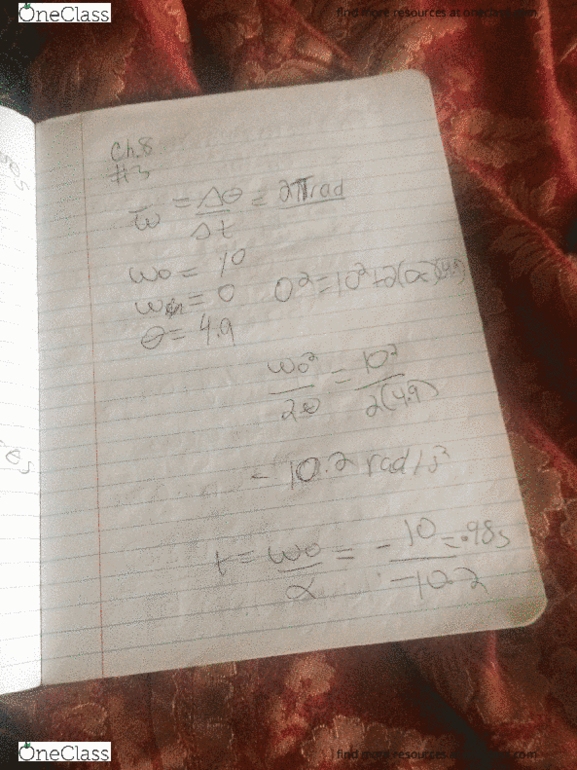 OneClass
find more resources at oneclass.com
Ch.8
#3
ω̄ = Δθ/Δt = 2πrad
ωo = 10
ω = 0
θ = 4.9
0² = 10² + 2(α)(4.9)
ωo²/2θ = 10²/2(4.9)
- 10.2 rad/s²
t = ωo/α = -10/-10.2 = .98s
OneClass
find more resources at oneclass.com